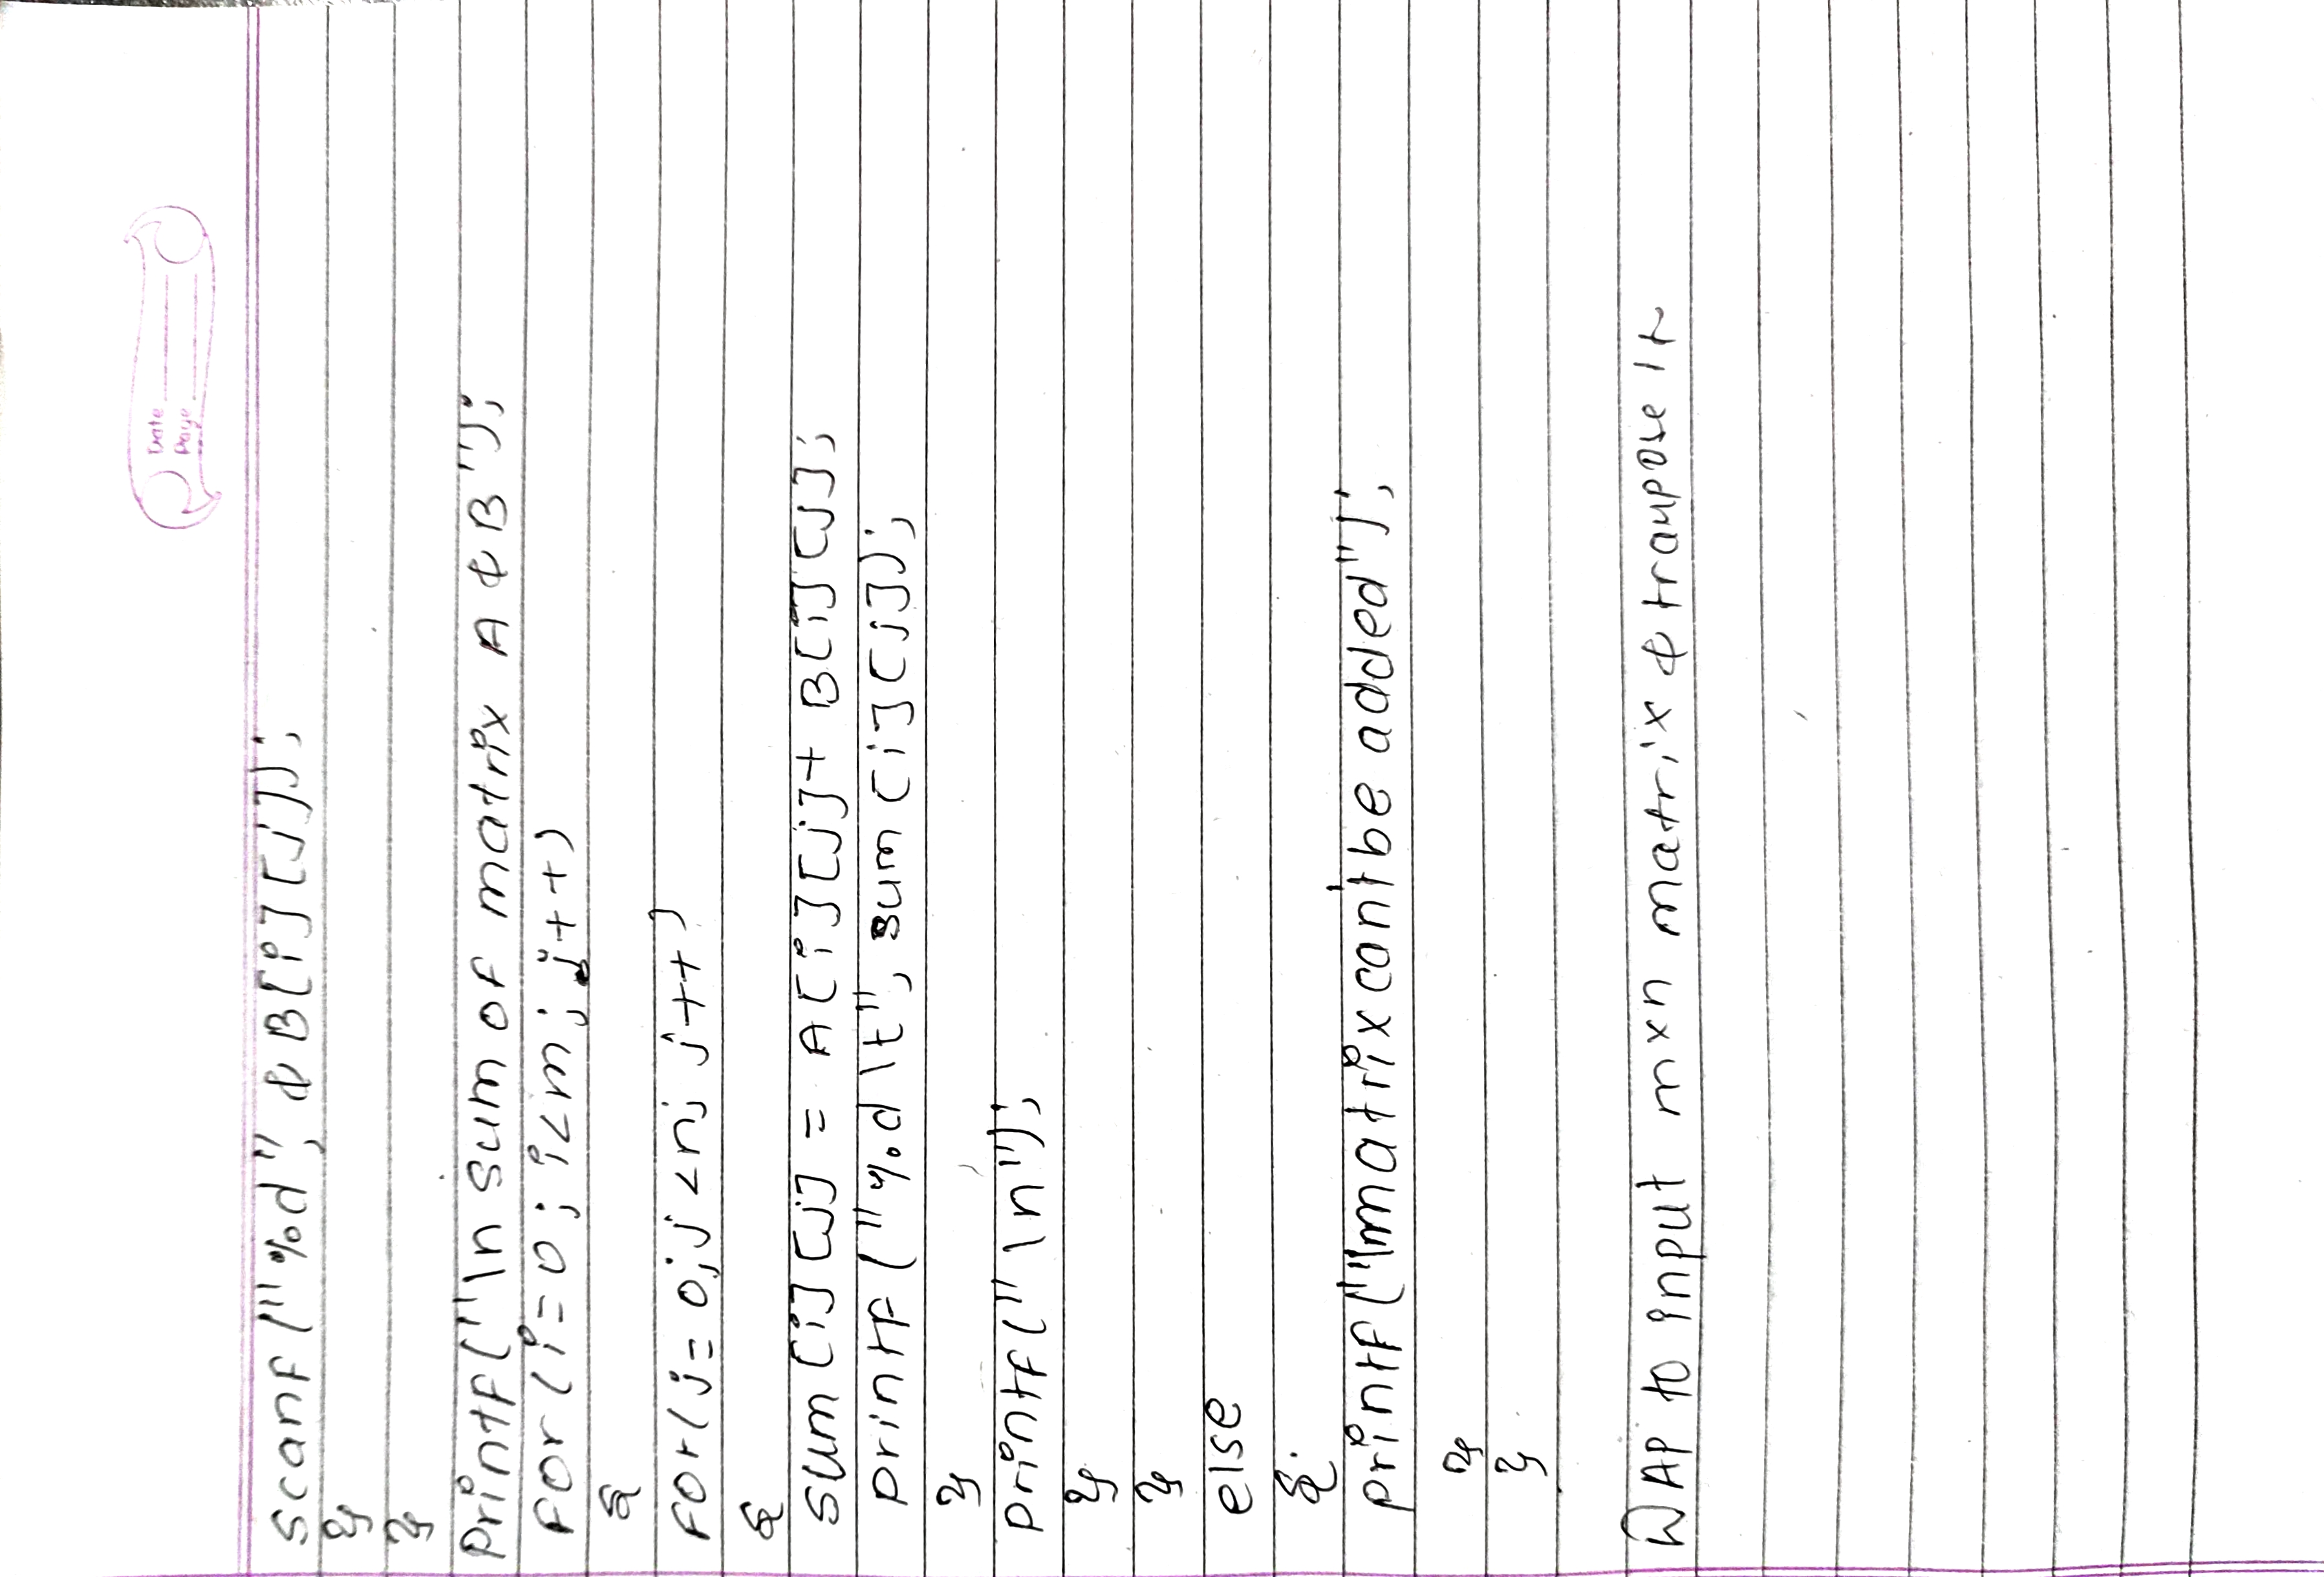 Date
Page
scanf("%d", &B[i][j]);
}
}
printf("\n sum of matrix A & B");
for(i=0; i<m; j++)
{
for(j=0; j<n; j++)
{
sum[i][j] = A[i][j]+ B[i][j];
printf("%d\t", sum[i][j]);
}
printf("\n");
}
}
else
{
printf("matrix can't be added");
}
}
WAP to input mxn matrix & traupose it